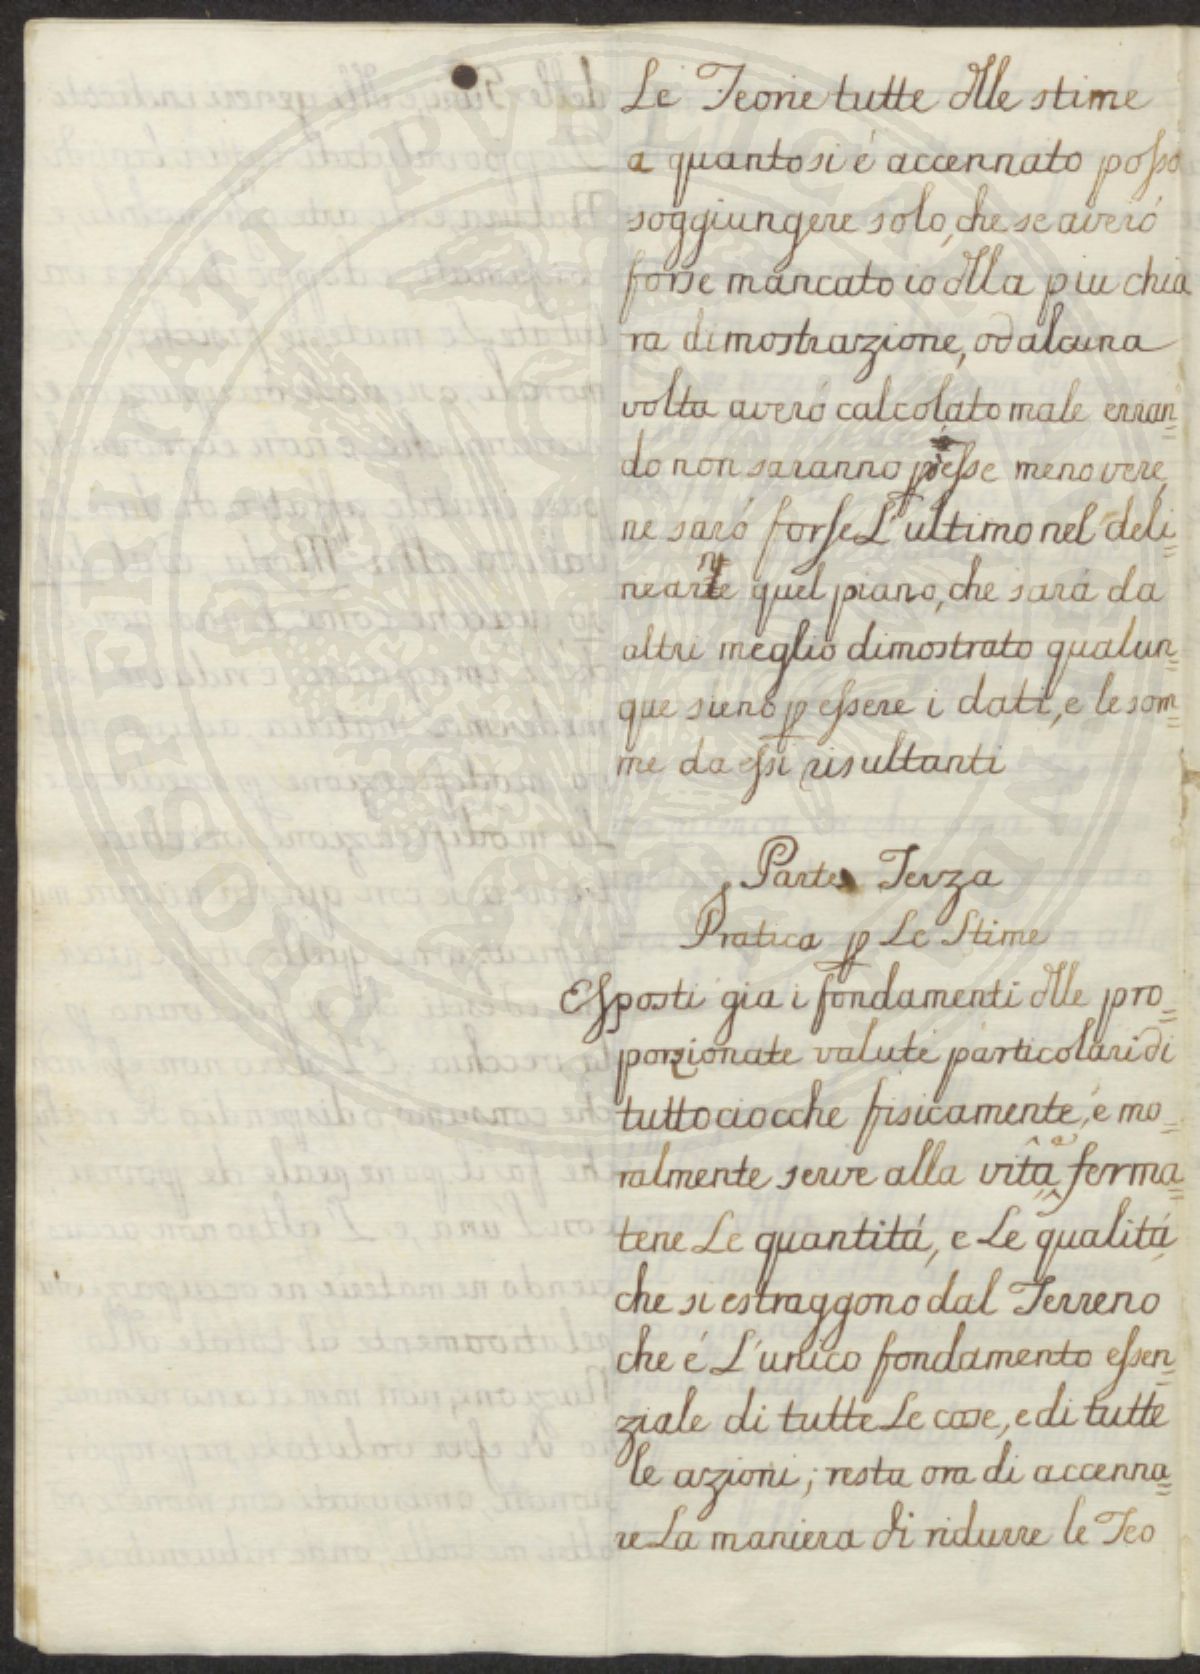 Le Teorie tutte dlle stime
a quanto si é accennato posso
soggiungere solo, che se averó
forse mancato io dlla piu chia
ra dimostrazione, od alcuna
volta averó calcolato male erran=
do non saranno esse meno vere,
ne saró forse L'ultimo nel deli=
neare quel piano, che sará da
altri meglio dimostrato qualun=
que sieno p essere i dati, e le som=
me da essi risultanti
Parte Terza
Pratica p Le Stime
Esposti gia i fondamenti dlle pro=
porzionate valute particolari di
tutto ciocche fisicamente, e mo=
ralmente serve alla vita ferma=
tene Le quantitá, e Le qualitá,
che si estraggono dal Terreno
che é L'unico fondamento essen=
ziale di tutte Le cose, e di tutte
le azioni; resta ora di accenna=
re La maniera di ridurre le Teo
PROSPERITATI PVBLICAE